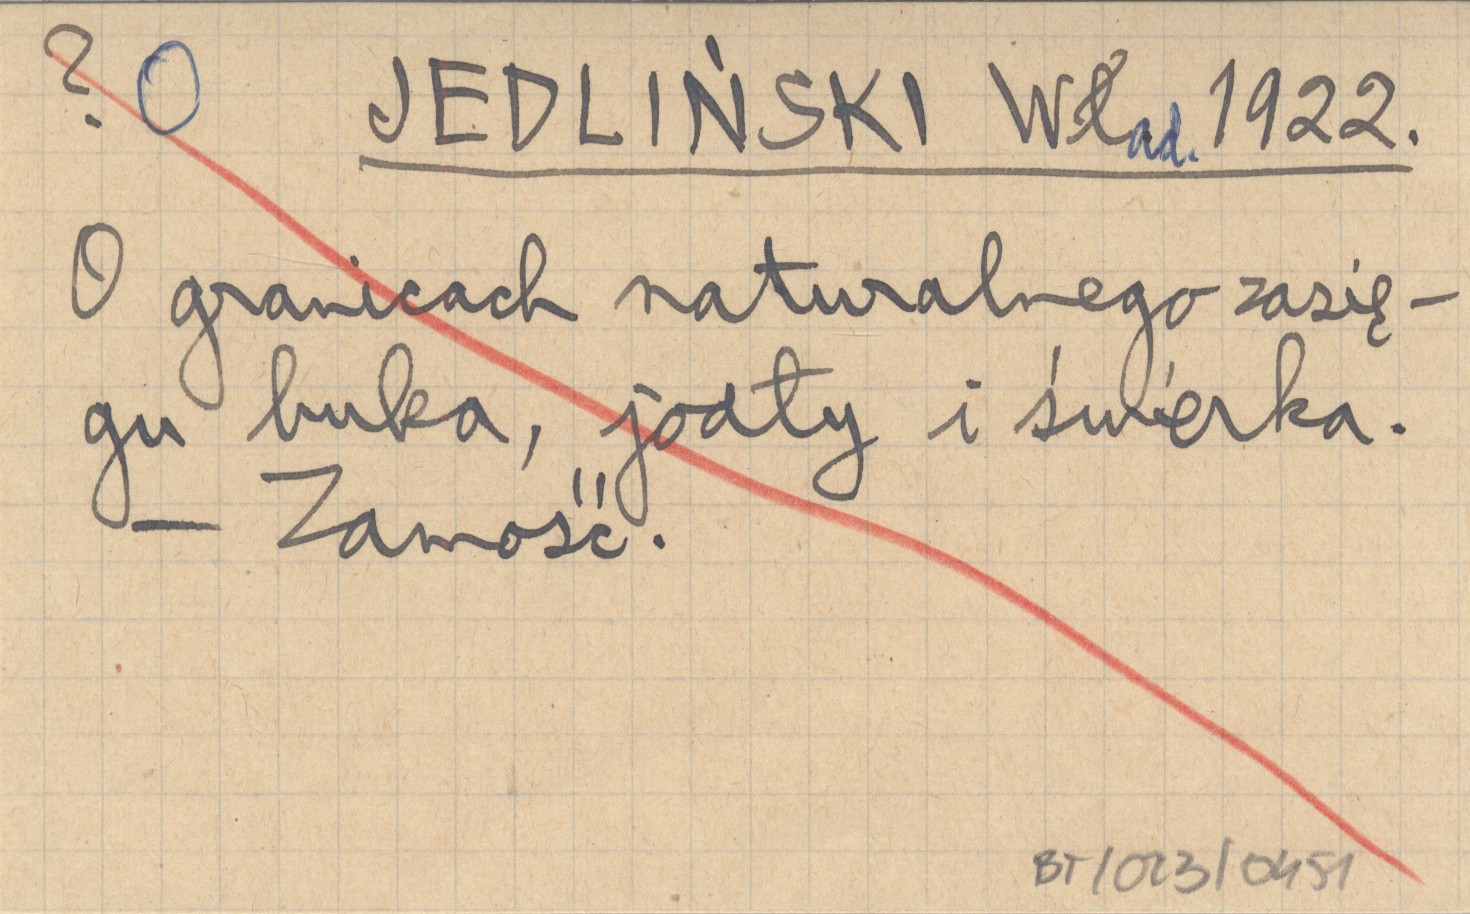 ? O JEDLIŃSKI Wład. 1922.
O granicach naturalnego zasię-
gu buka, jodły i świerka.
— Zamość.
BT/023/0451